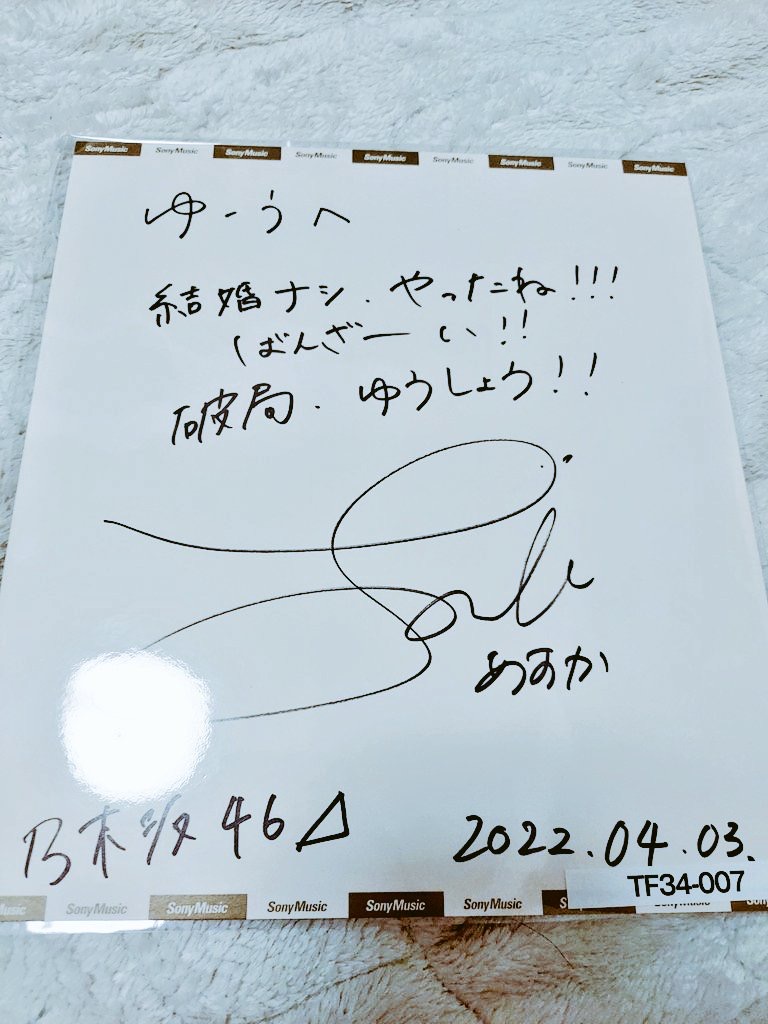 SonyMusic SonyMusic SonyMusic SonyMusic SonyMusic SonyMusic SonyMusic SonyMusic SonyMusic
ゆーうへ
結婚ナシ.やったね!!!
ばんざーい!!
破局.ゆうしょう!!
あすか
乃木坂46
2022.04.03.
TF34-007
SonyMusic SonyMusic SonyMusic SonyMusic SonyMusic